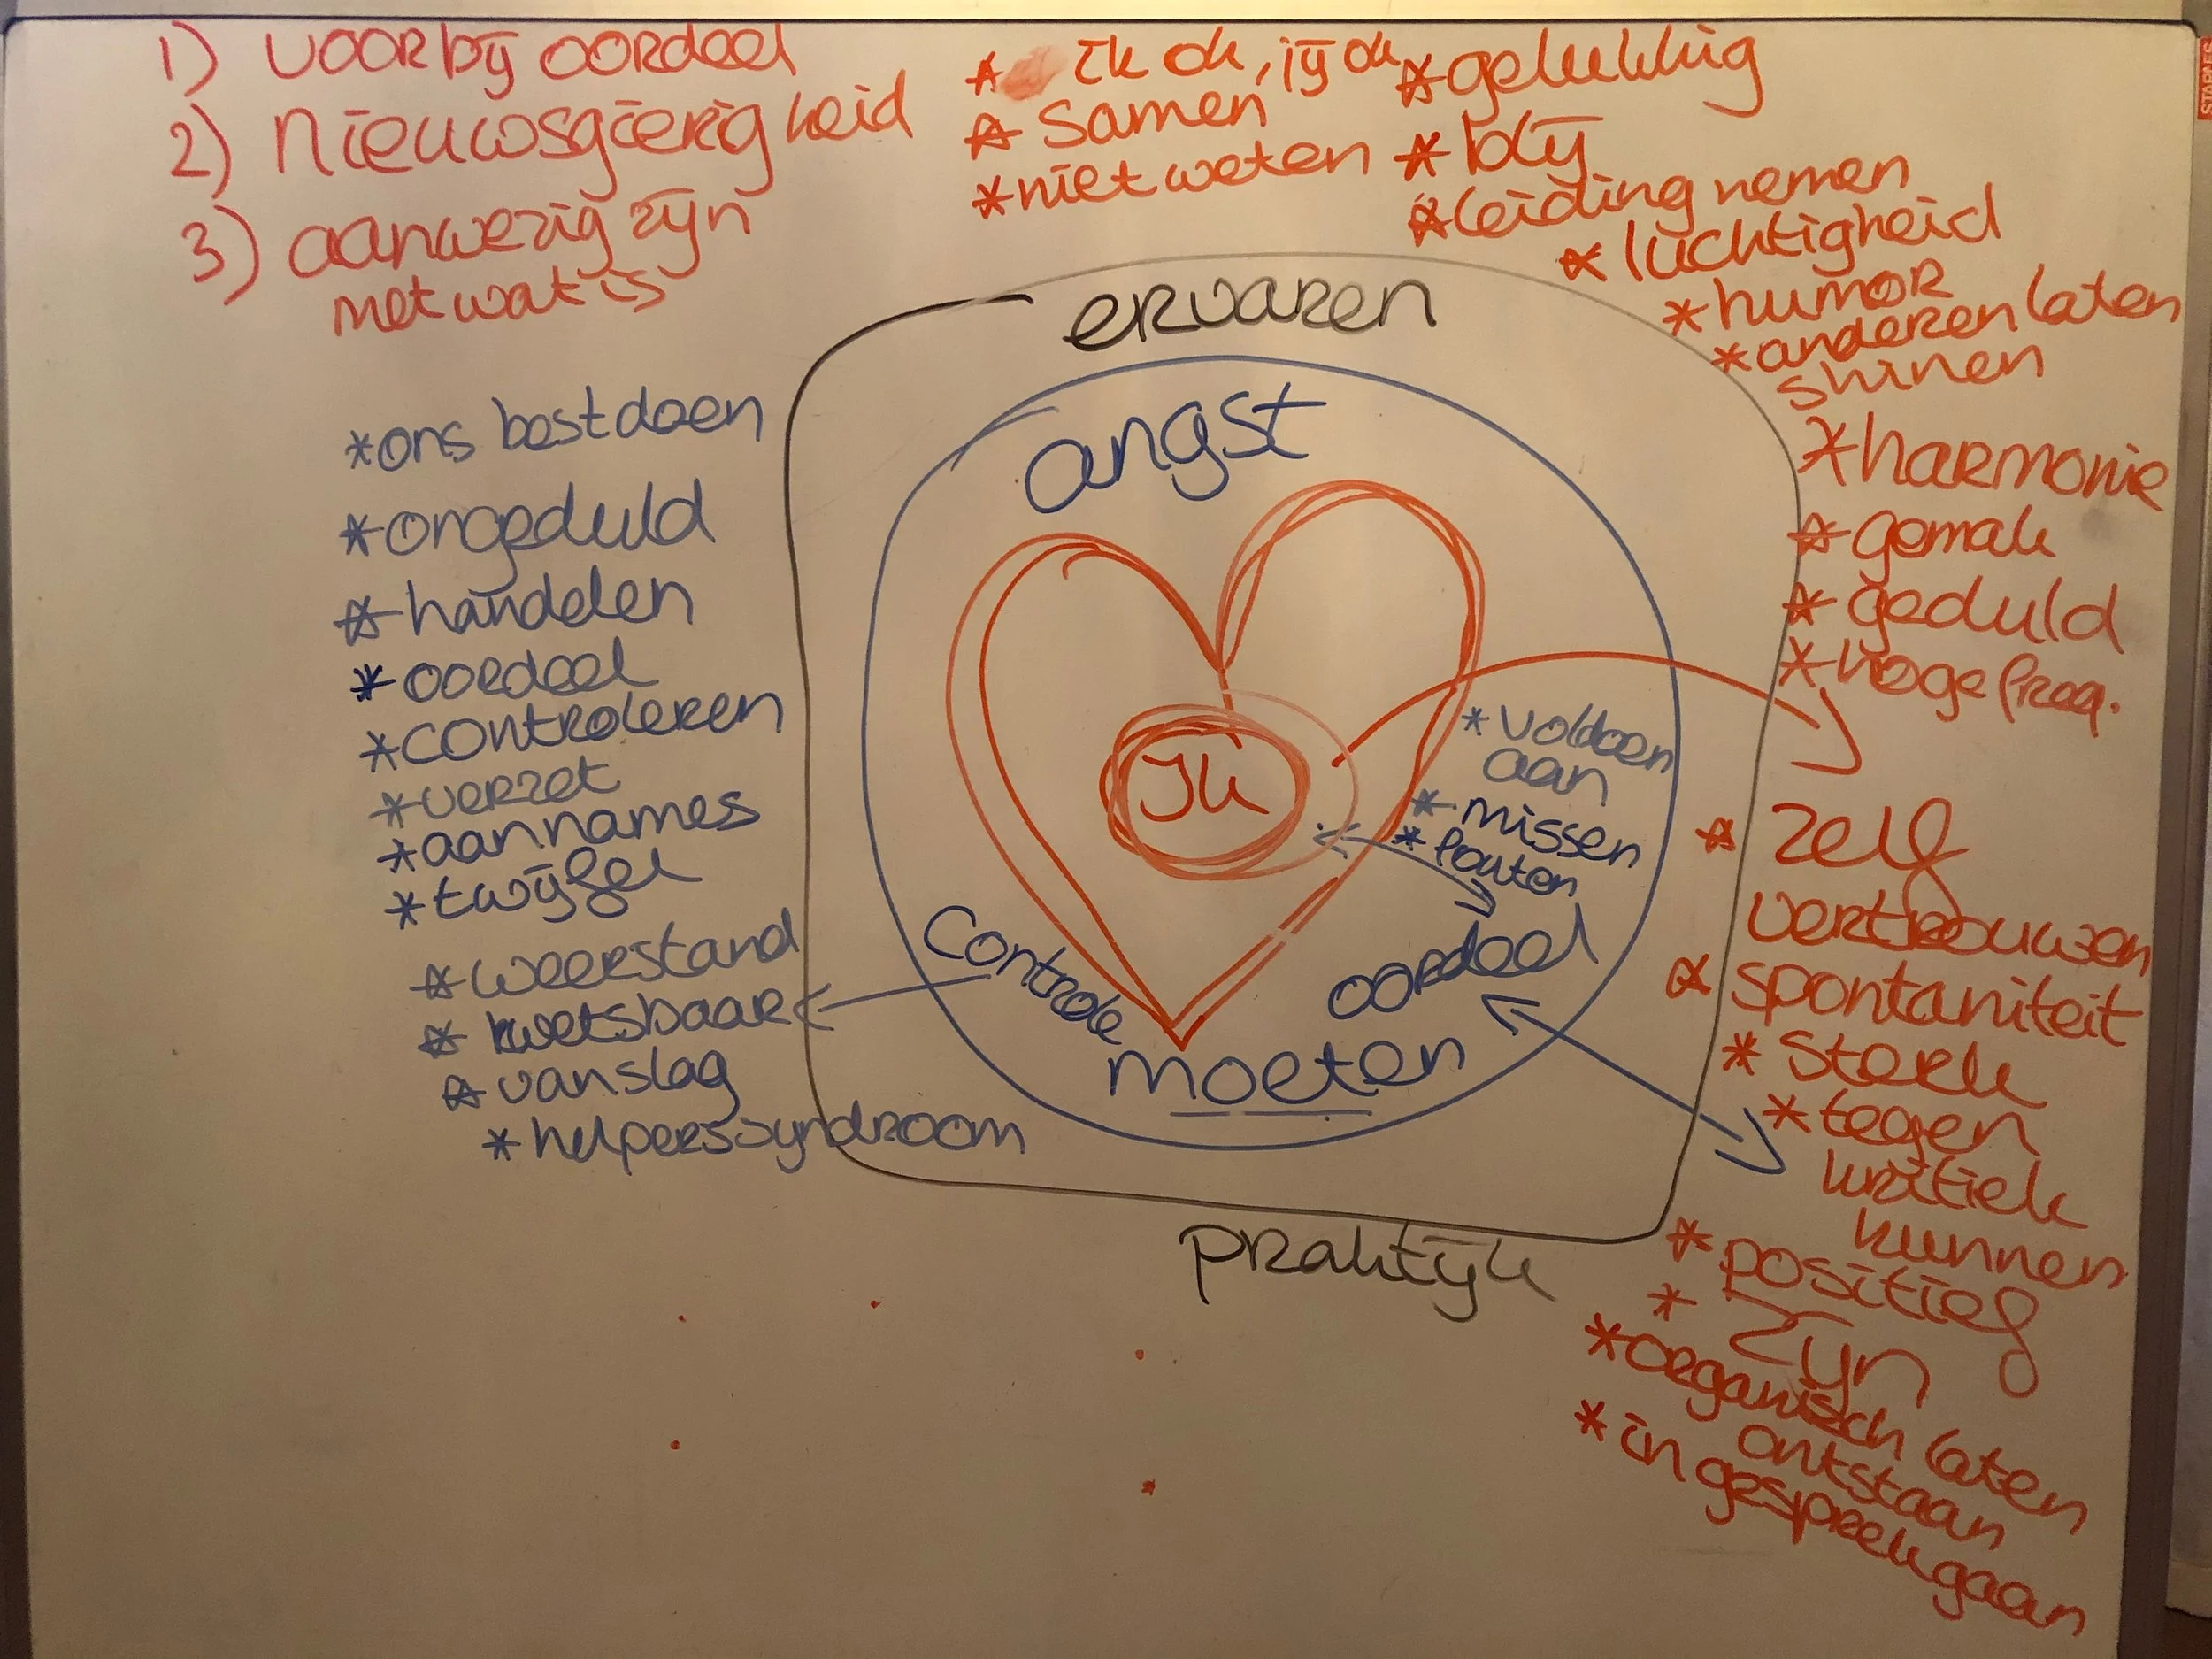 1) voorbij oordeel
2) nieuwsgierigheid
3) aanwezig zijn
met wat is
* ik ok, jij ok
* samen
* niet weten
* gelukkig
* blij
* leiding nemen
* luchtigheid
* humor
* anderen laten
shinen
* harmonie
* gemak
* geduld
* hoge freq.
* zelf
vertrouwen
* spontaniteit
* sterk
* tegen
kritiek
kunnen
* positief
* zijn
* organisch laten
ontstaan
* in gesprek gaan
ervaren
angst
Ik
* voldoen
aan
* missen
* fouten
oordeel
Controle
moeten
praktijk
* ons best doen
* ongeduld
* handelen
* oordeel
* controleren
* verzet
* aannames
* twijfel
* weerstand
* kwetsbaar
* vanslag
* helperssyndroom